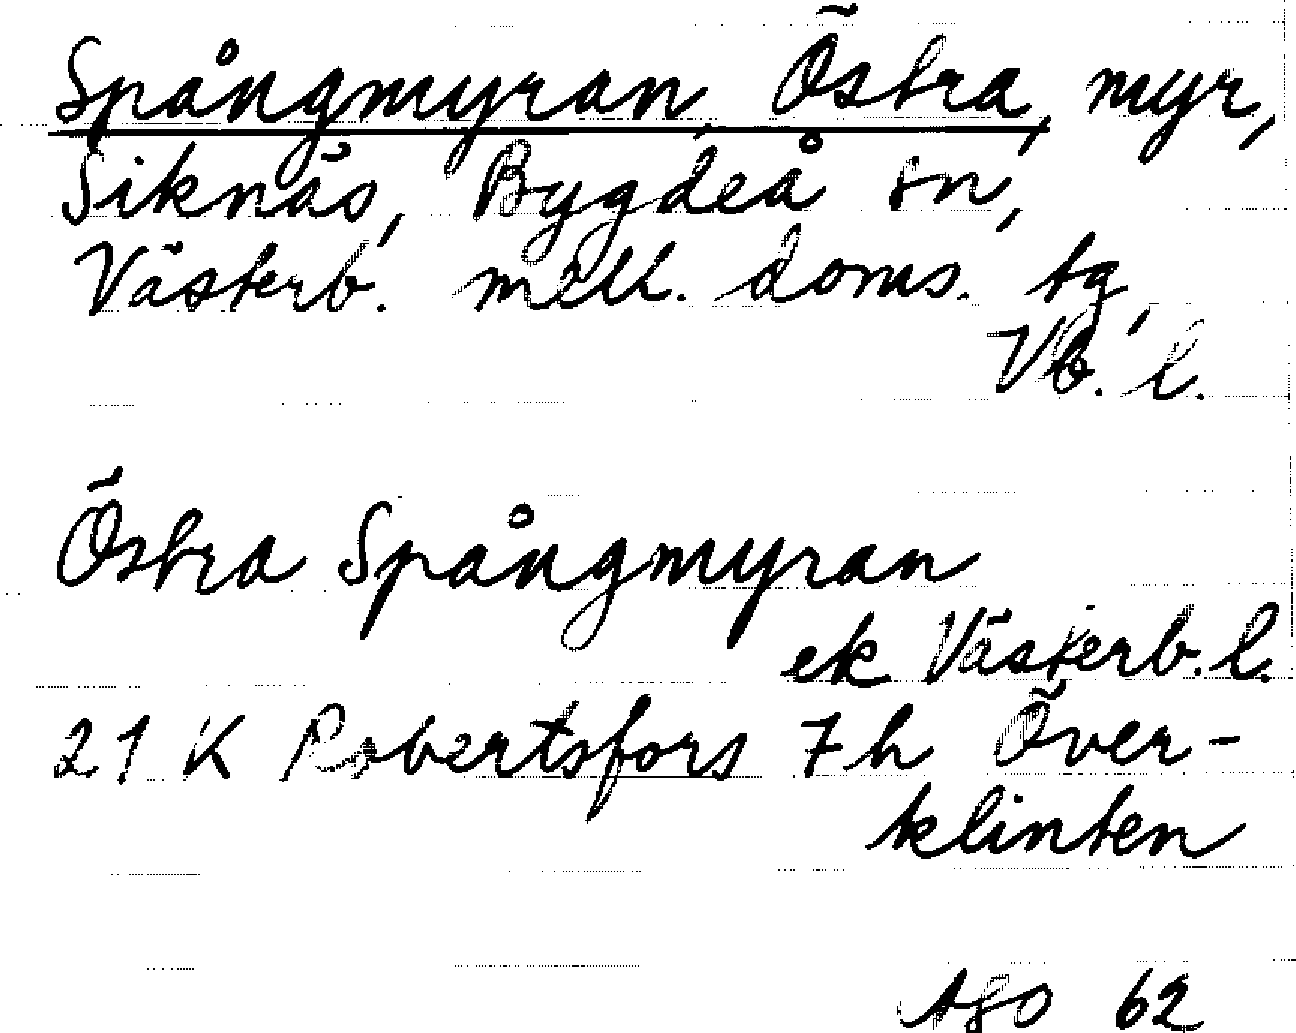 Spångmyran, Östra, myr,
Siknäs, Bygdeå sn,
Västerb. mell. doms. tg,
Vb. l.
Östra Spångmyran
ek Västerb. l.
21 K Robertsfors 7 h Över-
klinten
AGO 62